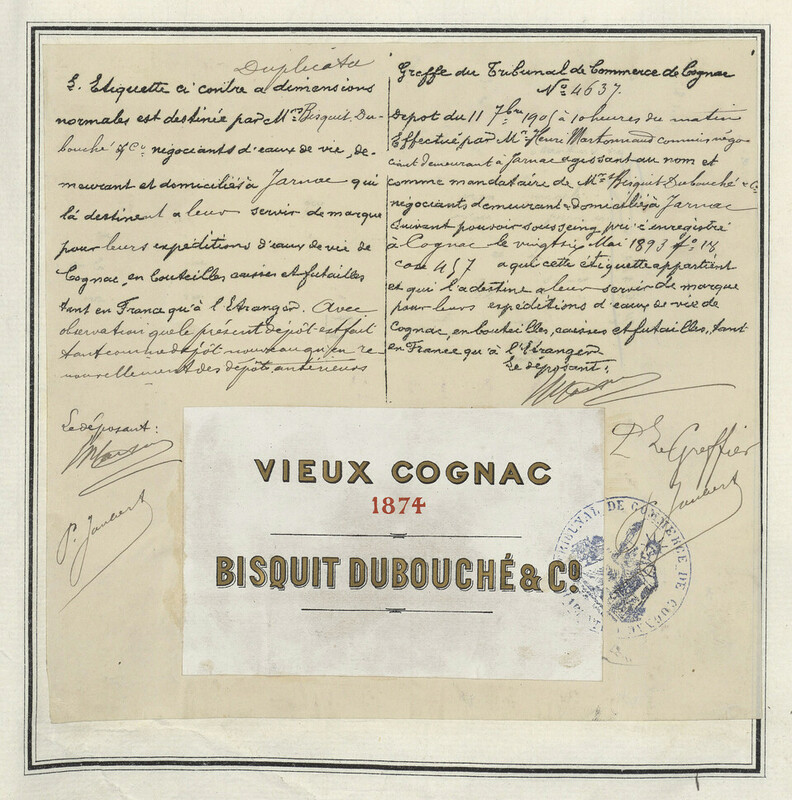 Duplicata
L. Etiquette ci contre a dimensions
normales est destinée par Mrs Bisquit Du-
bouché & Co négociants d'eaux de vie, de-
meurant et domiciliés à Jarnac qui
la destinent a leur servir de marque
pour leurs expéditions d'eaux de vie de
Cognac, en bouteilles caisses et futailles
tant en France qu'à l'Etranger. Avec
observation que le présent dépôt est fait
tant comme dépôt nouveau qu'en re-
nouvellement des dépôts antérieurs
Le déposant:
P. Jaubert
Greffe du Tribunal de Commerce de Cognac
No 4637.
Depot du 11 7bre 1905 à 10 heures du matin
Effectué par Mr Henri Martonnaud commis négo-
ciant demeurant à Jarnac agissant au nom et
comme mandataire de Mrs Bisquit Dubouché & Co
négociants demeurant & domiciliés à Jarnac
suivant pouvoir sous seing privé enregistré
à Cognac le vingt six Mai 1893 fo 18
case 457 a qui cette étiquette appartient
et qui l'a destine a leur servir de marque
pour leurs expéditions d'eaux de vie de
Cognac, en bouteilles, caisses et futailles, tant
en France qu'à l'Etranger
Le déposant:
Le Greffier
Jaubert
VIEUX COGNAC
1874
BISQUIT DUBOUCHÉ & Co
TRIBUNAL DE COMMERCE DE COGNAC